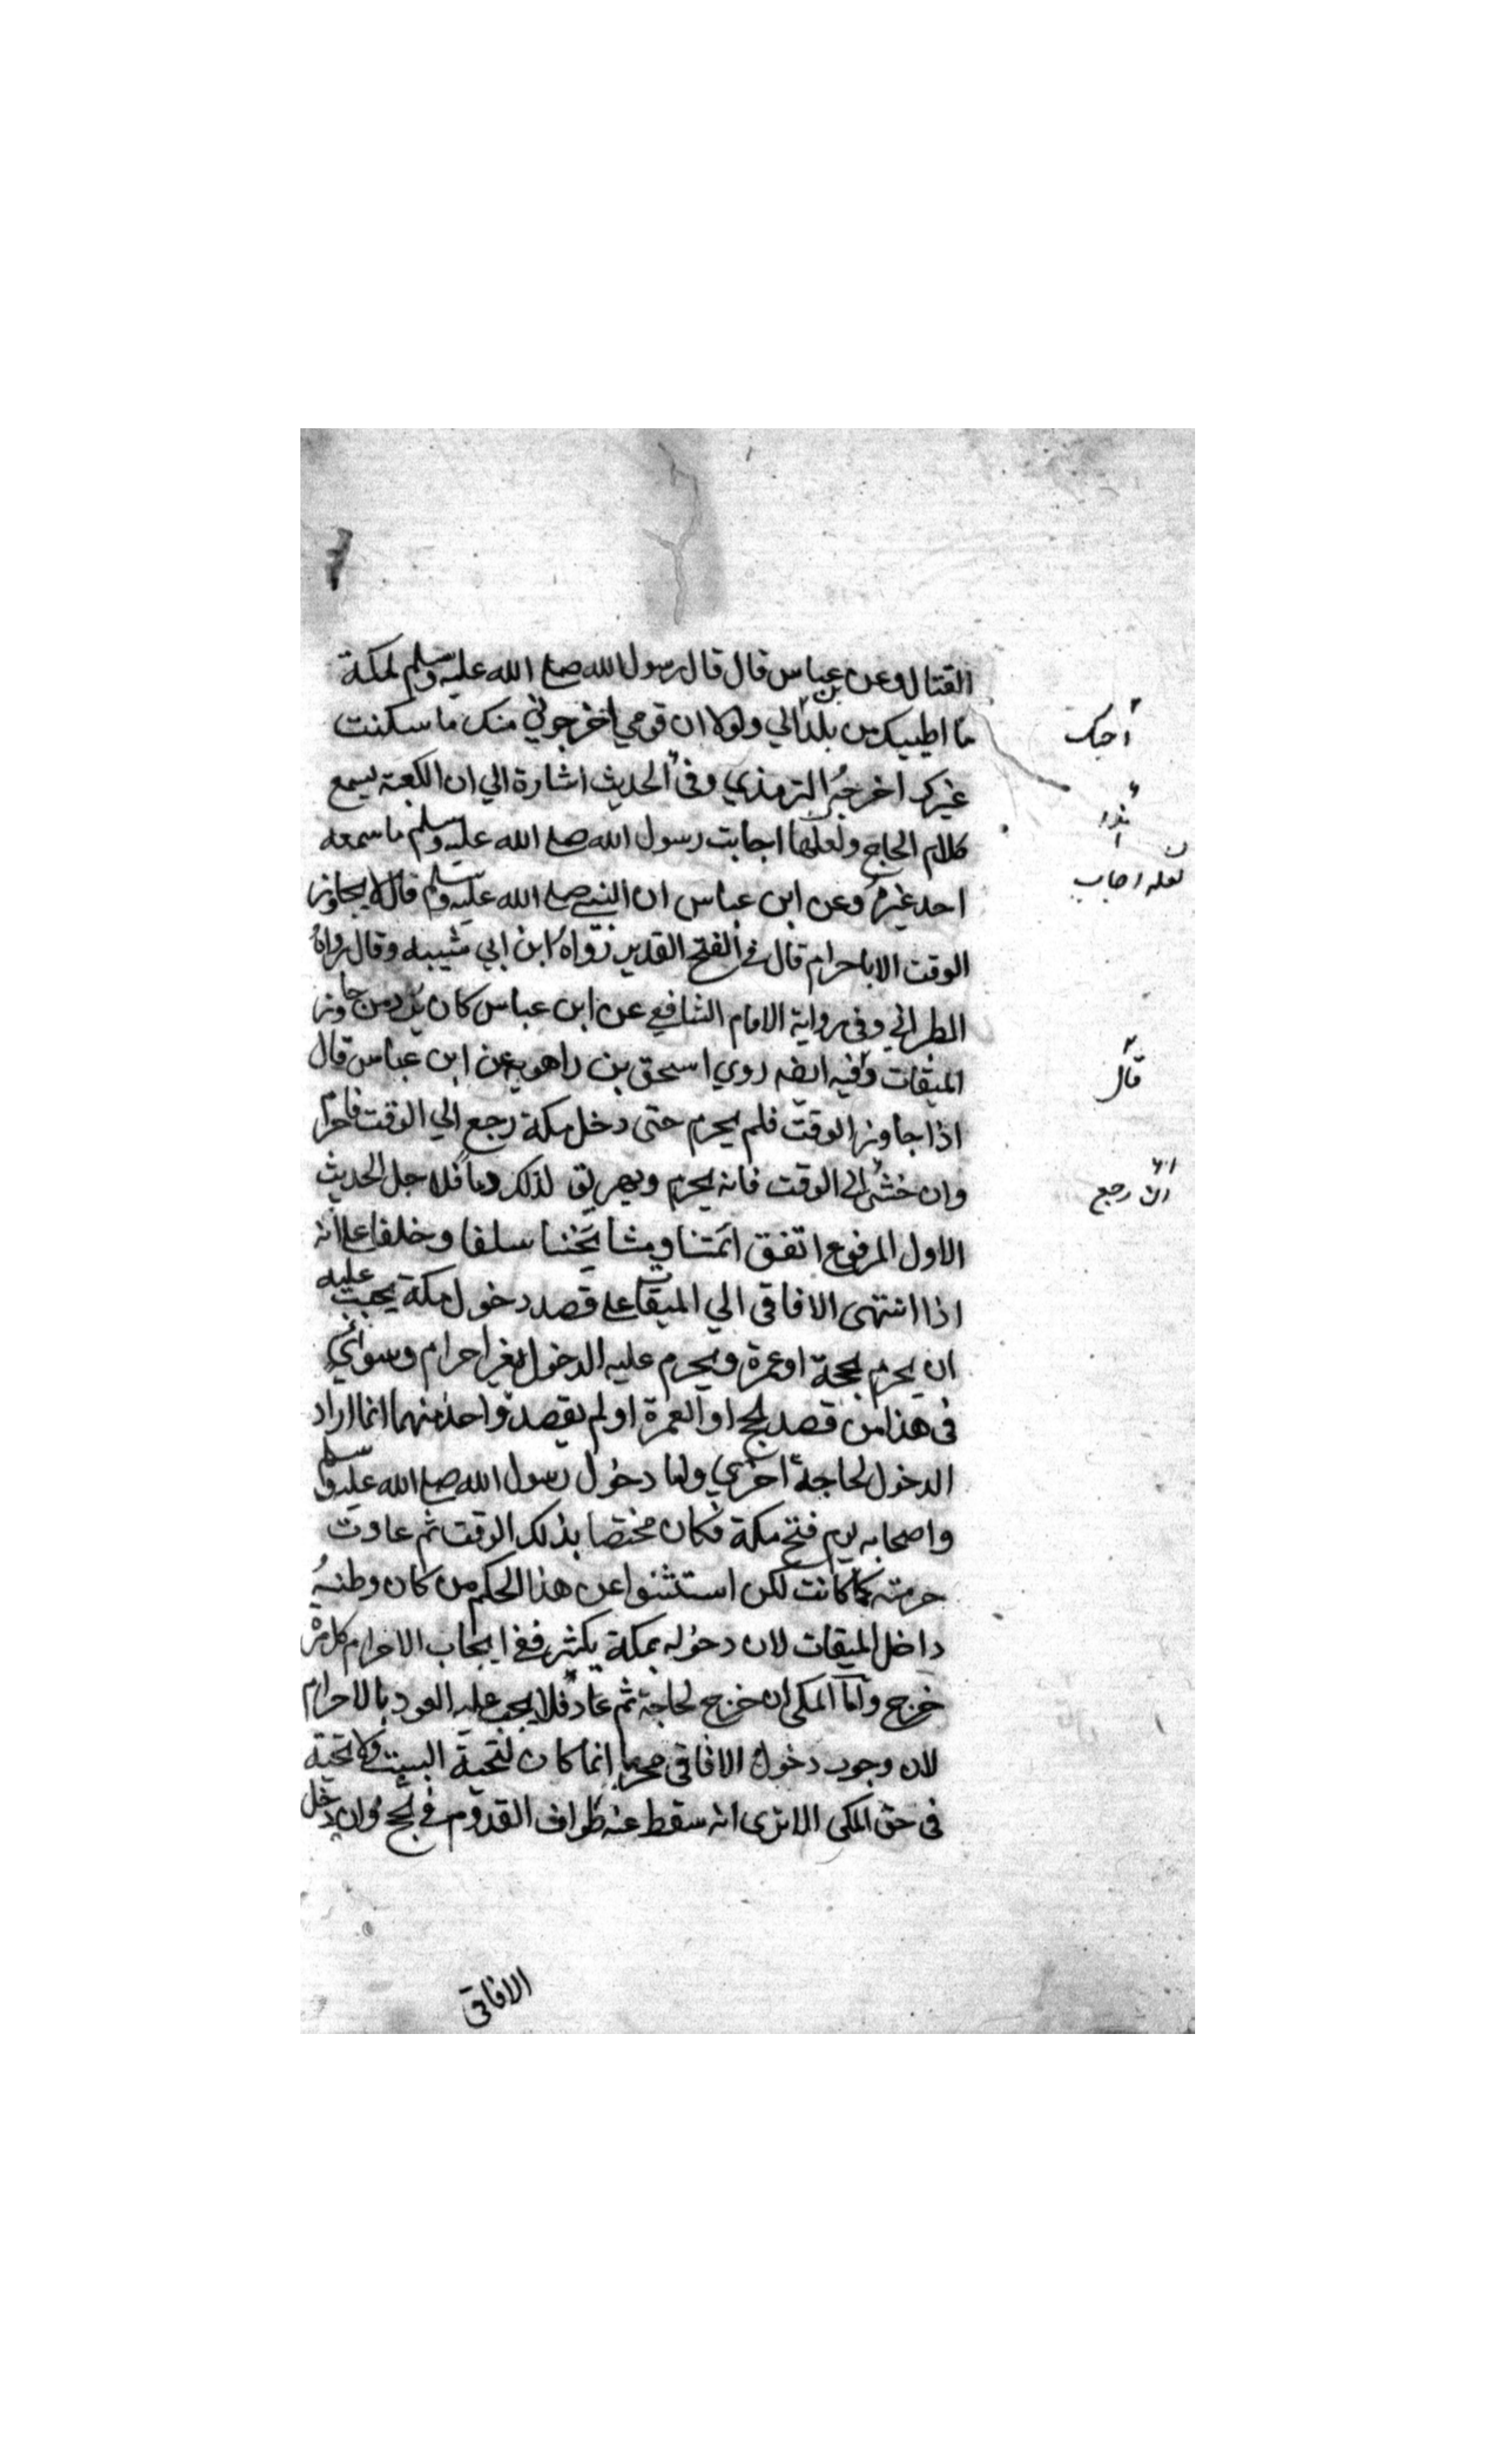 القتال وعن بن عباس قال قال رسول الله صلع الله عليه وسلم لمكة
ما اطيبك من بلد الي ولولا ان قومي اخرجوني منك ما سكنت
غيرك اخرجه الترمذي وفي الحديث اشارة الي ان الكعبة يسمع
كلام الحاج ولعلها اجابت رسول الله صلع الله عليه وسلم ما سمعه
احد غيره وعن ابن عباس ان النبي صلع الله عليه وسلم قال لا يجاوز
الوقت الا باحرام قال في الفتح القدير رواه ابن ابي شيبه وقال رواه
الطبراني وفي رواية الامام الشافعي عن ابن عباس كان يرد من جاوز
الميقات وفيه ايضه روي اسحق بن راهويه عن ابن عباس قال
اذا جاوز الوقت فلم يحرم حتى دخل مكة رجع الي الوقت فاحرام
وان خشي الى الوقت فانه يحرم ويهريق لذلك دما فلاجل الحديث
الاول المرفوع اتفق ائمتنا ومشايخنا سلفا وخلفا على انه
اذا انتهى الافاقى الي الميقات على قصد دخول مكة يجب عليه
ان يحرم بحجة او عمرة ويحرم عليه الدخول بغير احرام وسوائي
فى هذا من قصد لحج او العمرة او لم يقصد واحد منهما انما اراد
الدخول لحاجة اخري ولما دخول رسول الله صلع الله عليه وسلم
واصحابه يوم فتح مكة فكان مختصا بذلك الوقت ثم عادت
حرمته كما كانت لكن استثنوا عن هذا الحكم من كان وطنه
داخل الميقات لان دخوله بمكة يكثر ففي ايجاب الاحرام كل مرة
خرج واما المكى ان خرج لحاجة ثم عاد فلا يجب عليه العود بالاحرام
لان وجوب دخول الافاقى محرما انما كان لتحية البيت ولا تحية
فى حق المكى الا ترى انه سقط عنه طواف القدوم في لحج وان دخل
الافاقى
احبك
لعله اجاب
قال
ان رجع